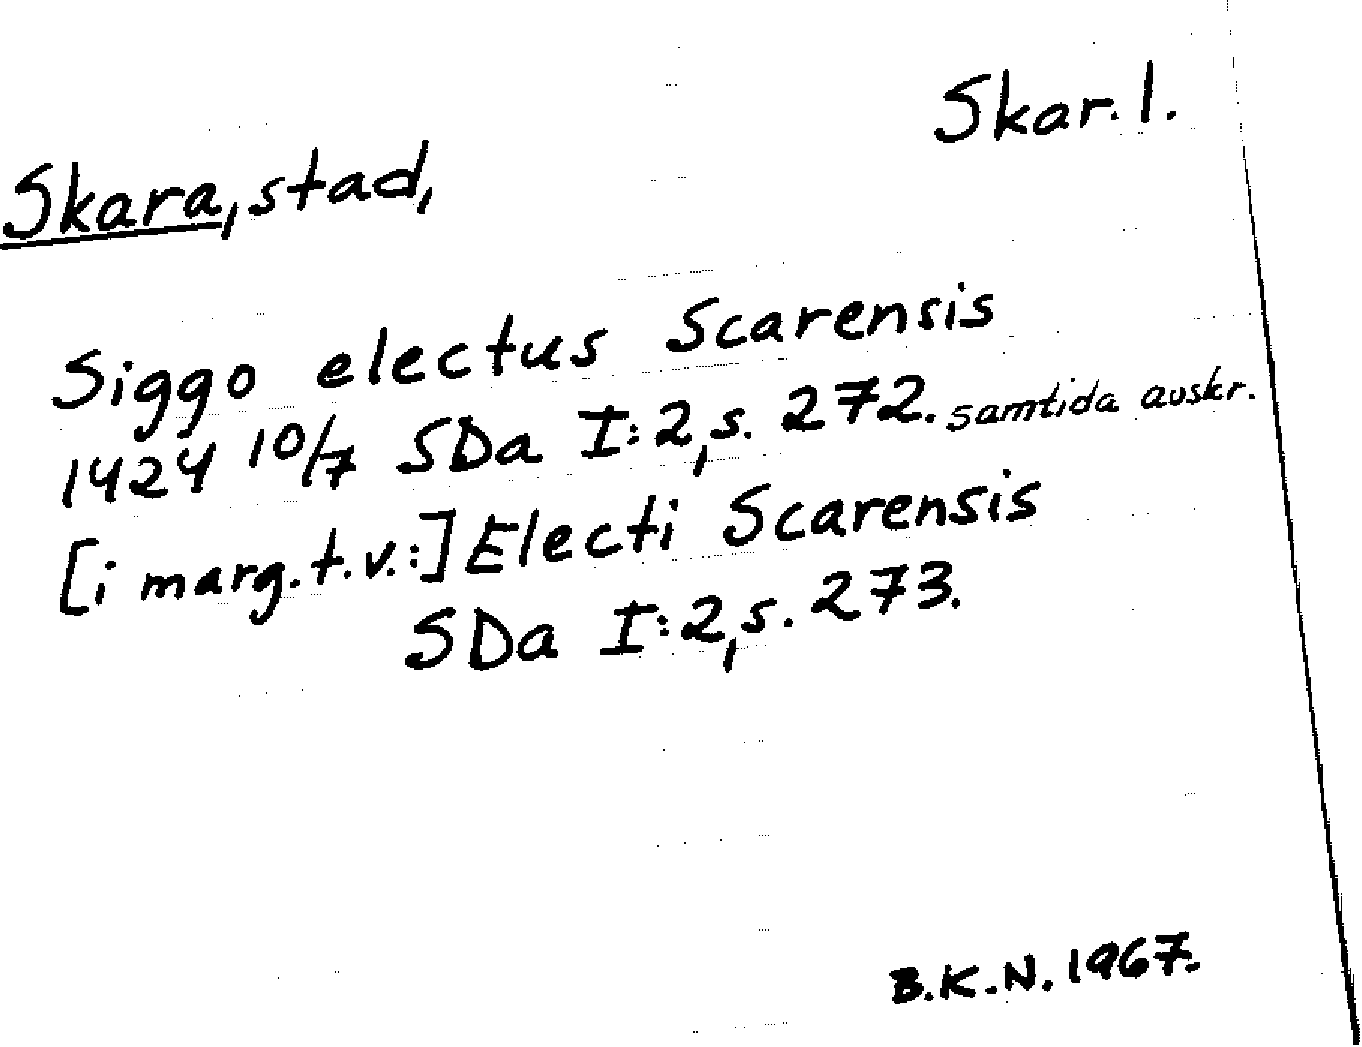 Skar. l.
Skara, stad,
Siggo electus Scarensis
1424 10/7 SDa I:2, s. 272. samtida avskr.
[i marg. t.v.:] Electi Scarensis
SDa I:2, s. 273.
B.K.N. 1967.